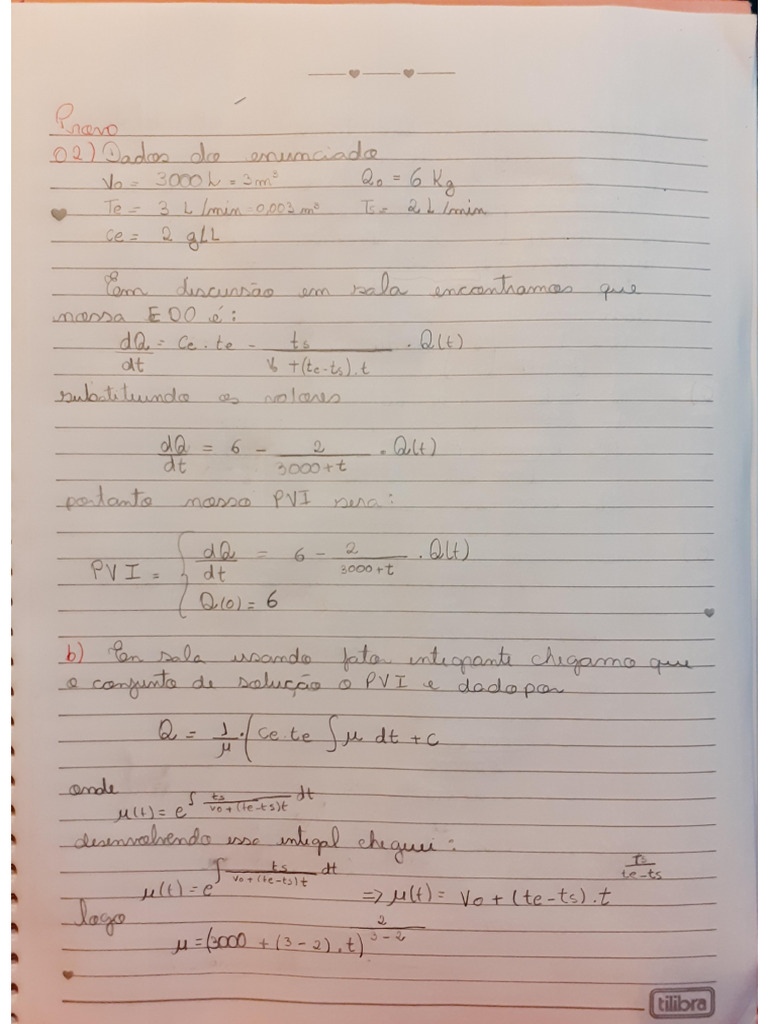 Prova
02) Dados do enunciado
V0 = 3000 L = 3 m³ Q0 = 6 Kg
Te = 3 L/min = 0,003 m³ Ts = 2 L/min
ce = 2 g/L
Em discursão em sala encontramos que
nossa EDO é:
dQ/dt = Ce . te - ts/(V0 + (te - ts) . t) . Q(t)
substituindo os valores
dQ/dt = 6 - 2/(3000 + t) . Q(t)
portanto nosso PVI sera:
PVI = { dQ/dt = 6 - 2/(3000 + t) . Q(t)
Q(0) = 6
b) Em sala usando fator integrante chegamo que
o conjunto de solução o PVI e dado por
Q = 1/μ . ( Ce . te ∫ μ dt + c
onde
μ(t) = e^∫ ts/(v0 + (te - ts) t) dt
desenvolvendo essa integal cheguei:
μ(t) = e^∫ ts/(v0 + (te - ts) t) dt => μ(t) = V0 + (te - ts) . t ^ts/(te - ts)
logo
μ = (3000 + (3 - 2) . t)^2/(3 - 2)
tilibra